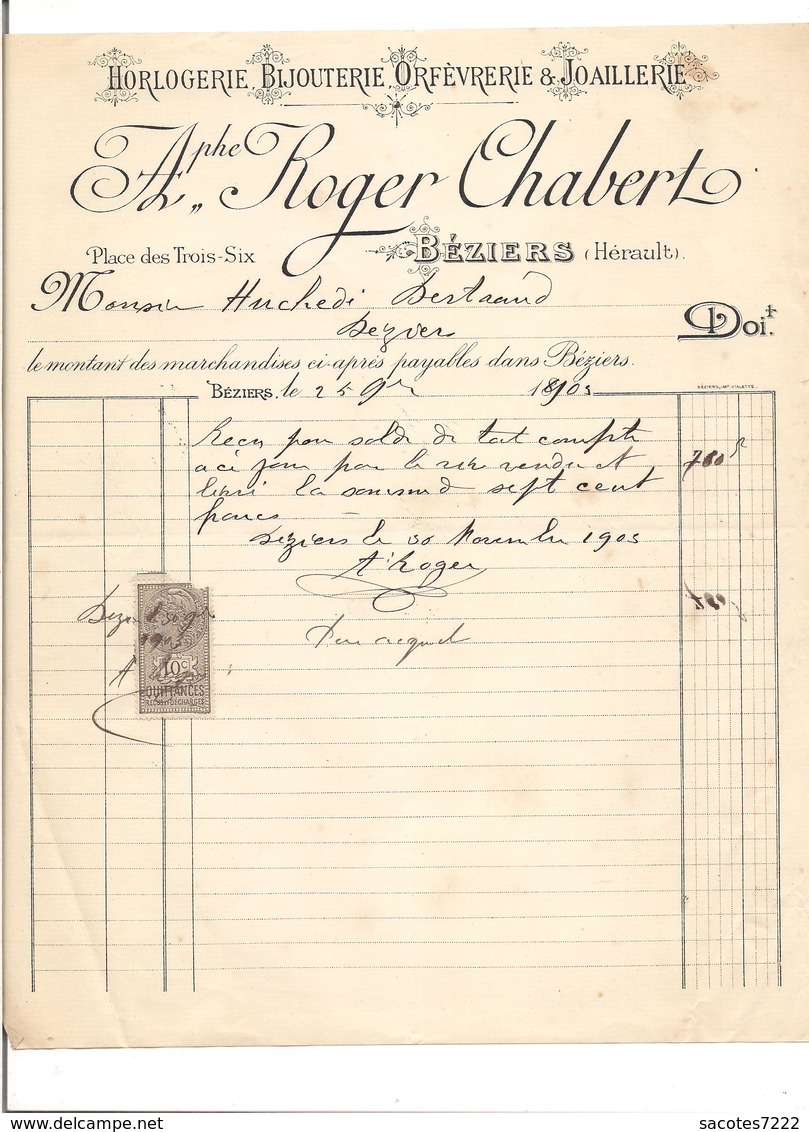 HORLOGERIE, BIJOUTERIE, ORFÈVRERIE & JOAILLERIE
Aphe Roger Chabert
Place des Trois-Six BÉZIERS (Hérault).
Monsieur Bertrand
Doit
le montant des marchandises ci-après payables dans Béziers.
BÉZIERS, IMP. VIALETTE.
BÉZIERS, le 25 9bre 1905
Reçu pour solde de tout compte
a ce jour pour le vendu et 700
livré la somme de sept cent
francs
Béziers le 30 Novembre 1905
A. Roger
700
Pour acquit
10c
QUITTANCES
REÇUS ET DÉCHARGES
sacotes7222